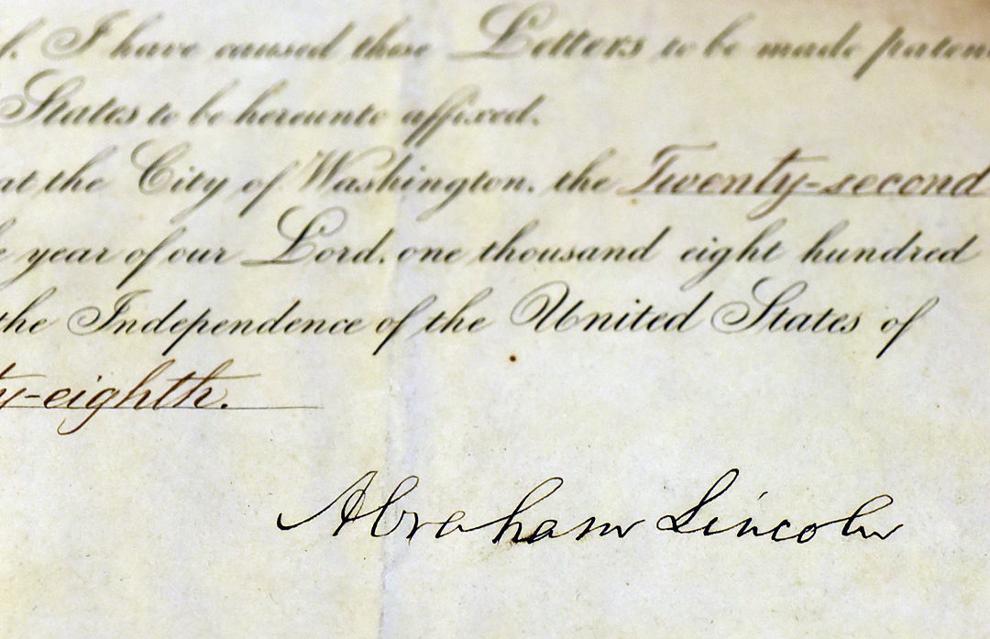 I have caused these Letters to be made paten
States to be hereunto affixed.
at the City of Washington, the Twenty-second
year of our Lord, one thousand eight hundred
the Independence of the United States of
ty-eighth.
Abraham Lincoln